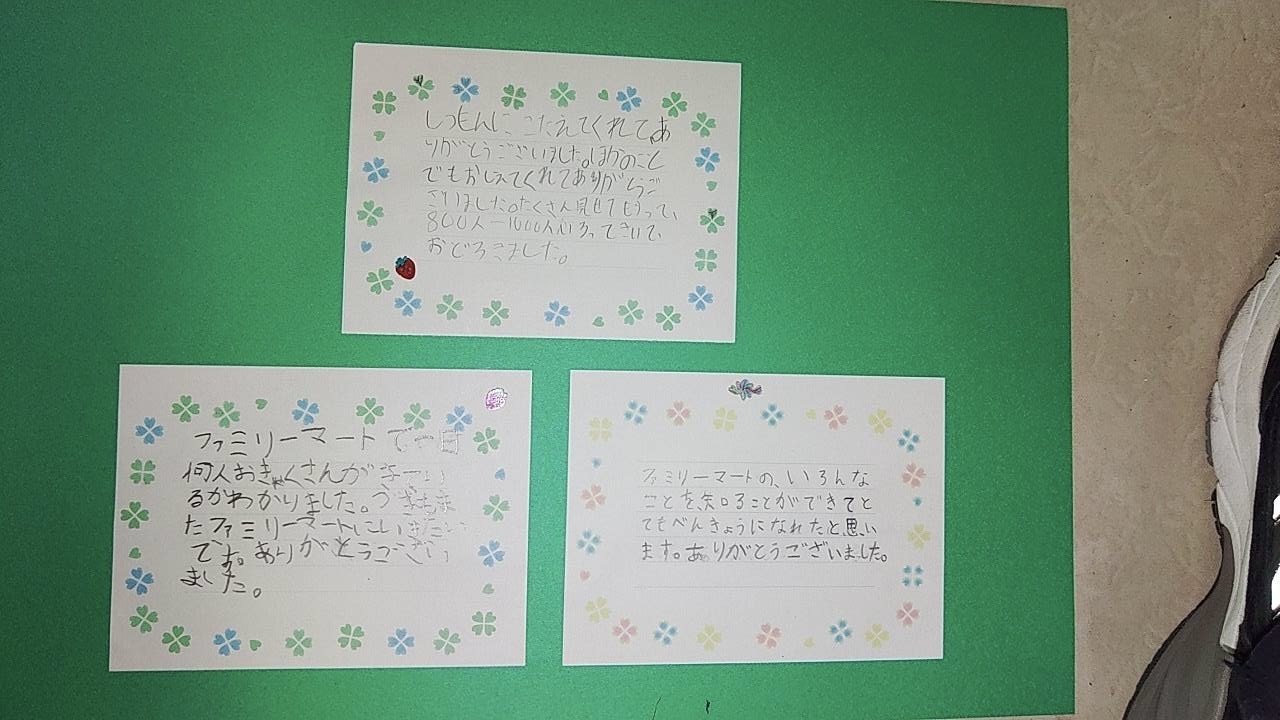 しつもんに こたえてくれて、あ
りがとうございました。ほかのこと
でもおしえてくれてありがとうご
ざいました。たくさん見せてもらって、
800人ー1000人
おどろきました。
ファミリーマートで一日
何人おきゃくさんが
るかわかりました。
たファミリーマートにいきたい
です。ありがとうござい
ました。
ファミリーマートの、いろんな
ことを知ることができてと
てもべんきょうになれたと思い
ます。ありがとうございました。